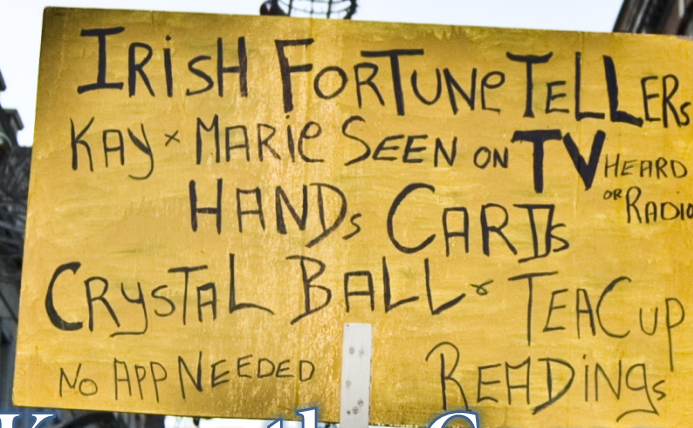 IRISH FORTUNE TELLERS
KAY × MARIE SEEN ON TV HEARD
OR RADIO
HANDS CARDS
CRYSTAL BALL & TEACUP
NO APP NEEDED READINGS